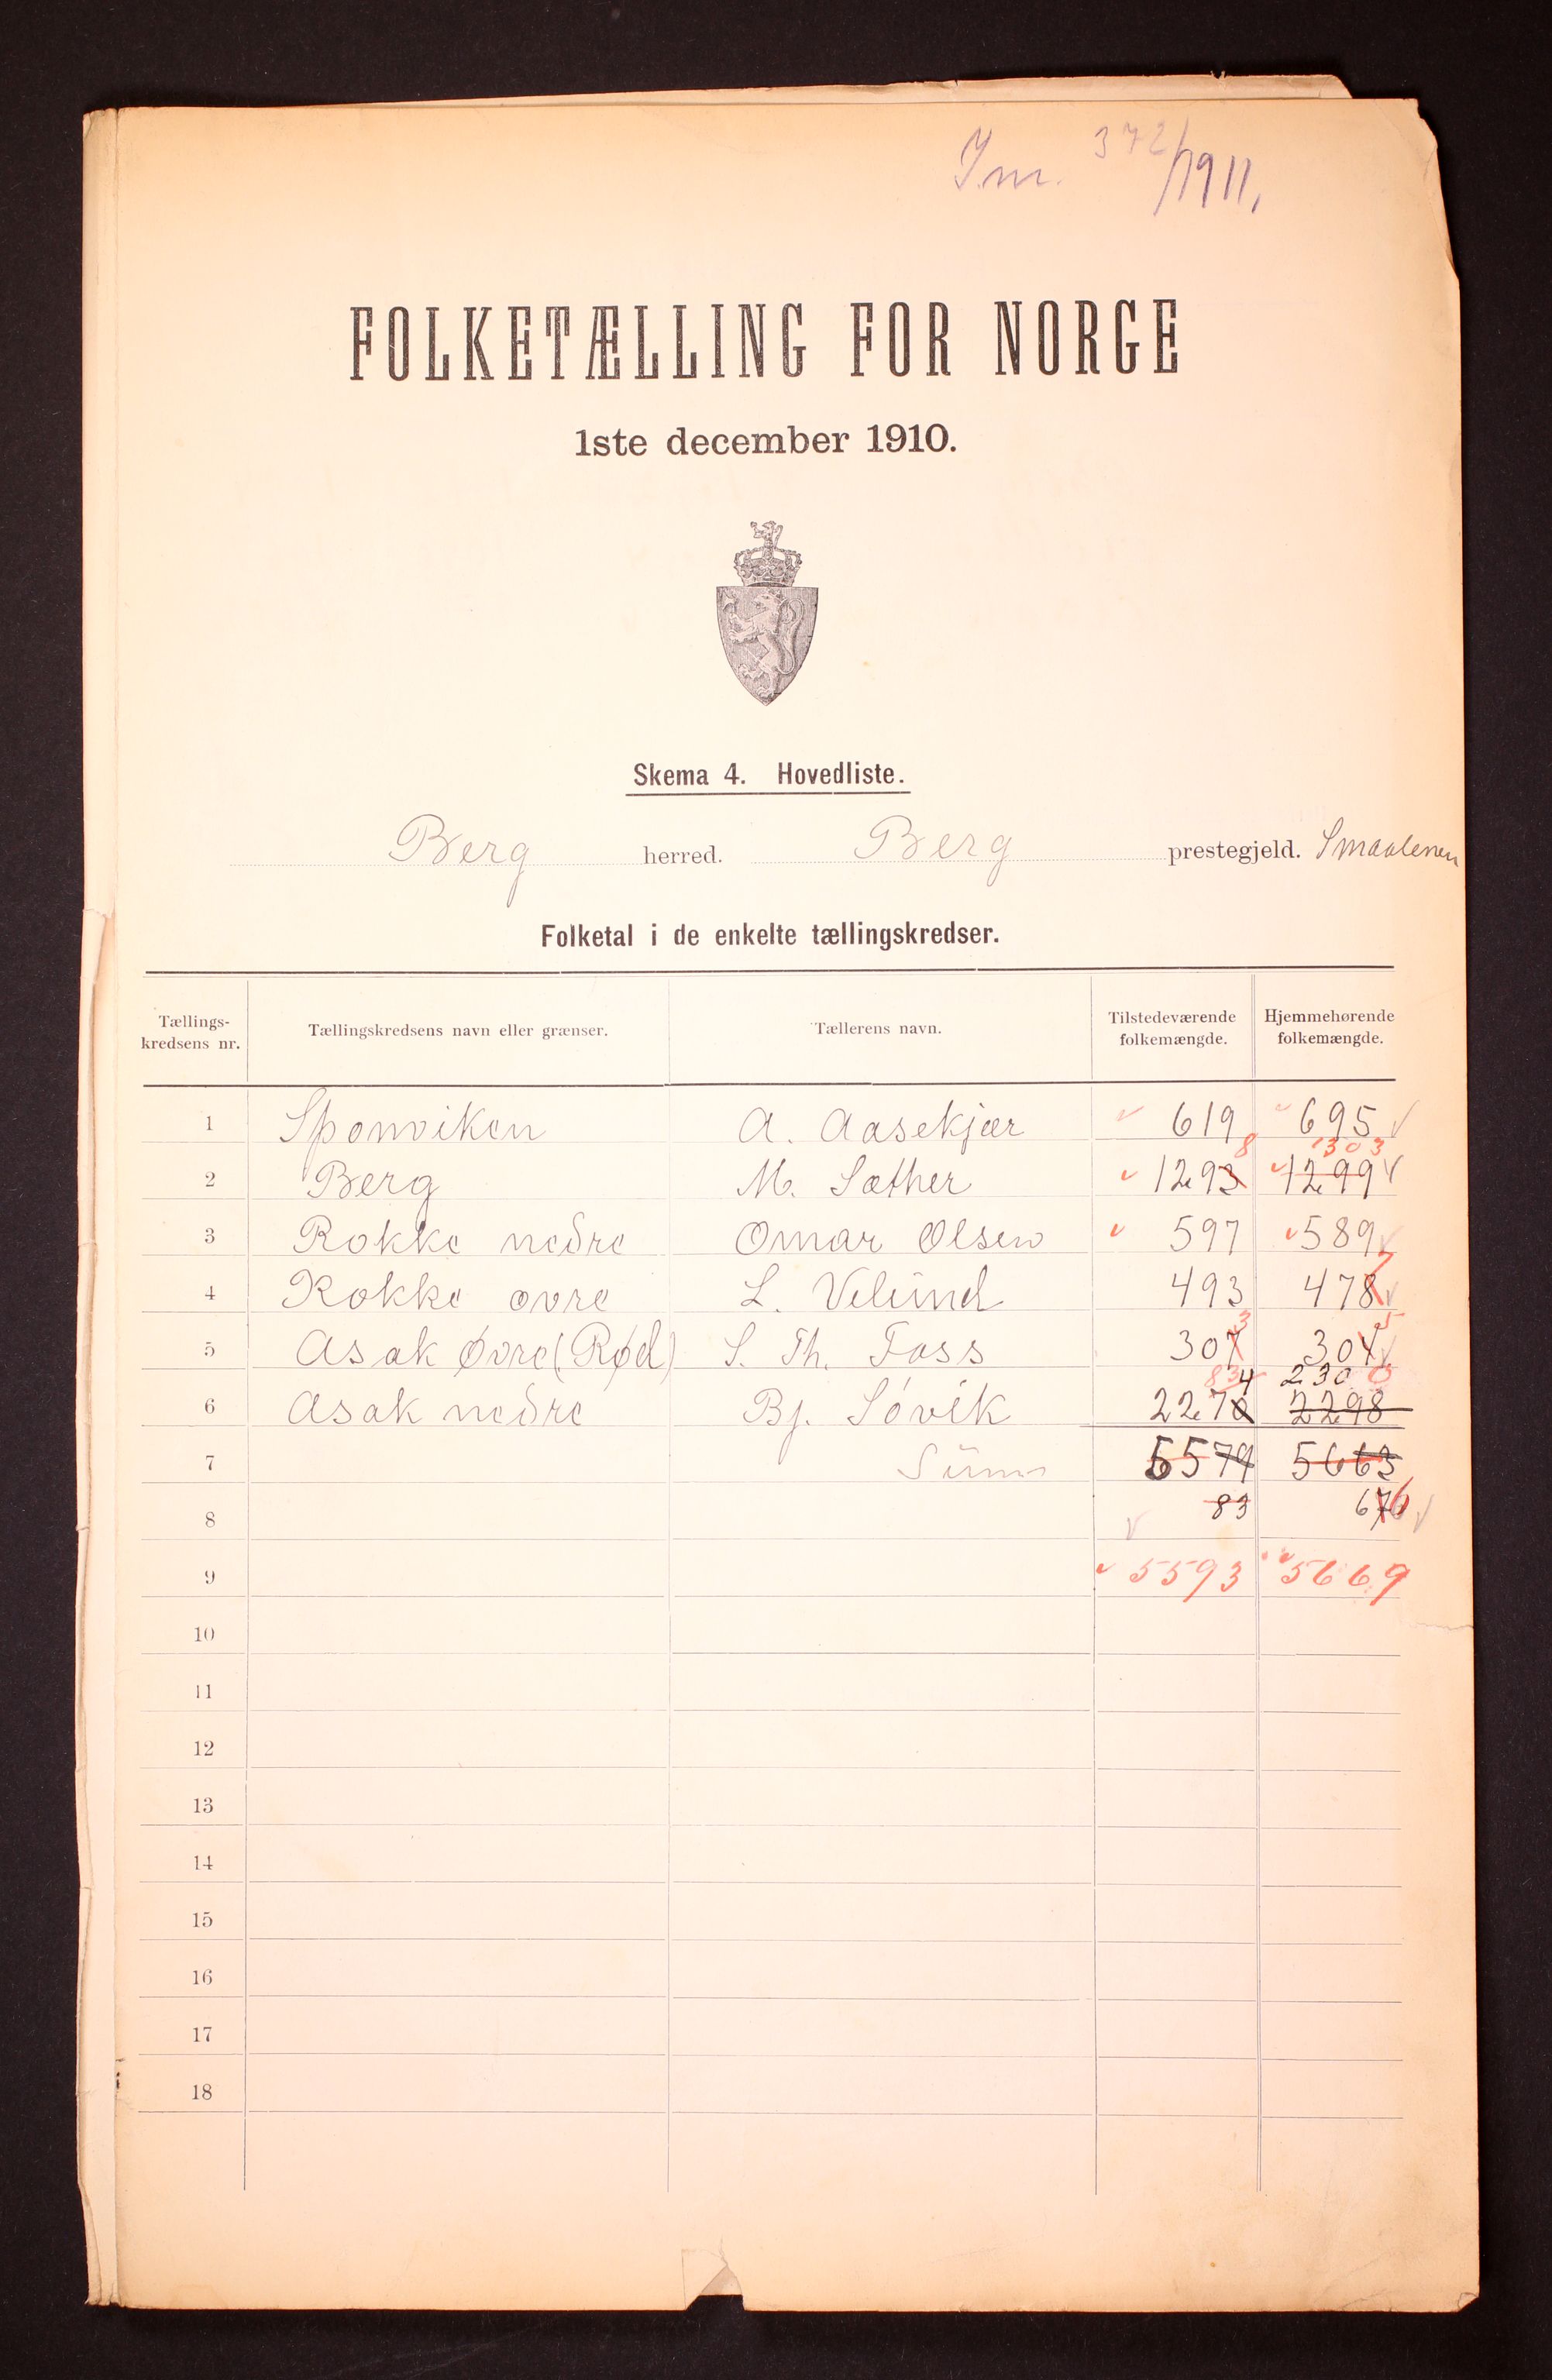 J.nr. 372/1911.
FOLKETÆLLING FOR NORGE
1ste december 1910.
Skema 4. Hovedliste.
Berg herred. Berg prestegjeld. Smaalenen
Folketal i de enkelte tællingskredser.
Tællings-kredsens nr. Tællingskredsens navn eller grænser. Tællerens navn. Tilstedeværende folkemængde. Hjemmehørende folkemængde.
1 Sponviken A. Aasekjær 619 695
8 1303
2 Berg M. Sæther 1293 1299
3 Rokke nedre Omar Olsen 597 589
7
4 Rokke øvre L. Velund 493 478
3 5
5 Asak Øvre (Rød) S. Th. Foss 307 304
83 4 2300
6 Asak nedre Bj. Søvik 2270 2298
7 Sum 5579 5663
8 83 676
9 5593 5669
10
11
12
13
14
15
16
17
18